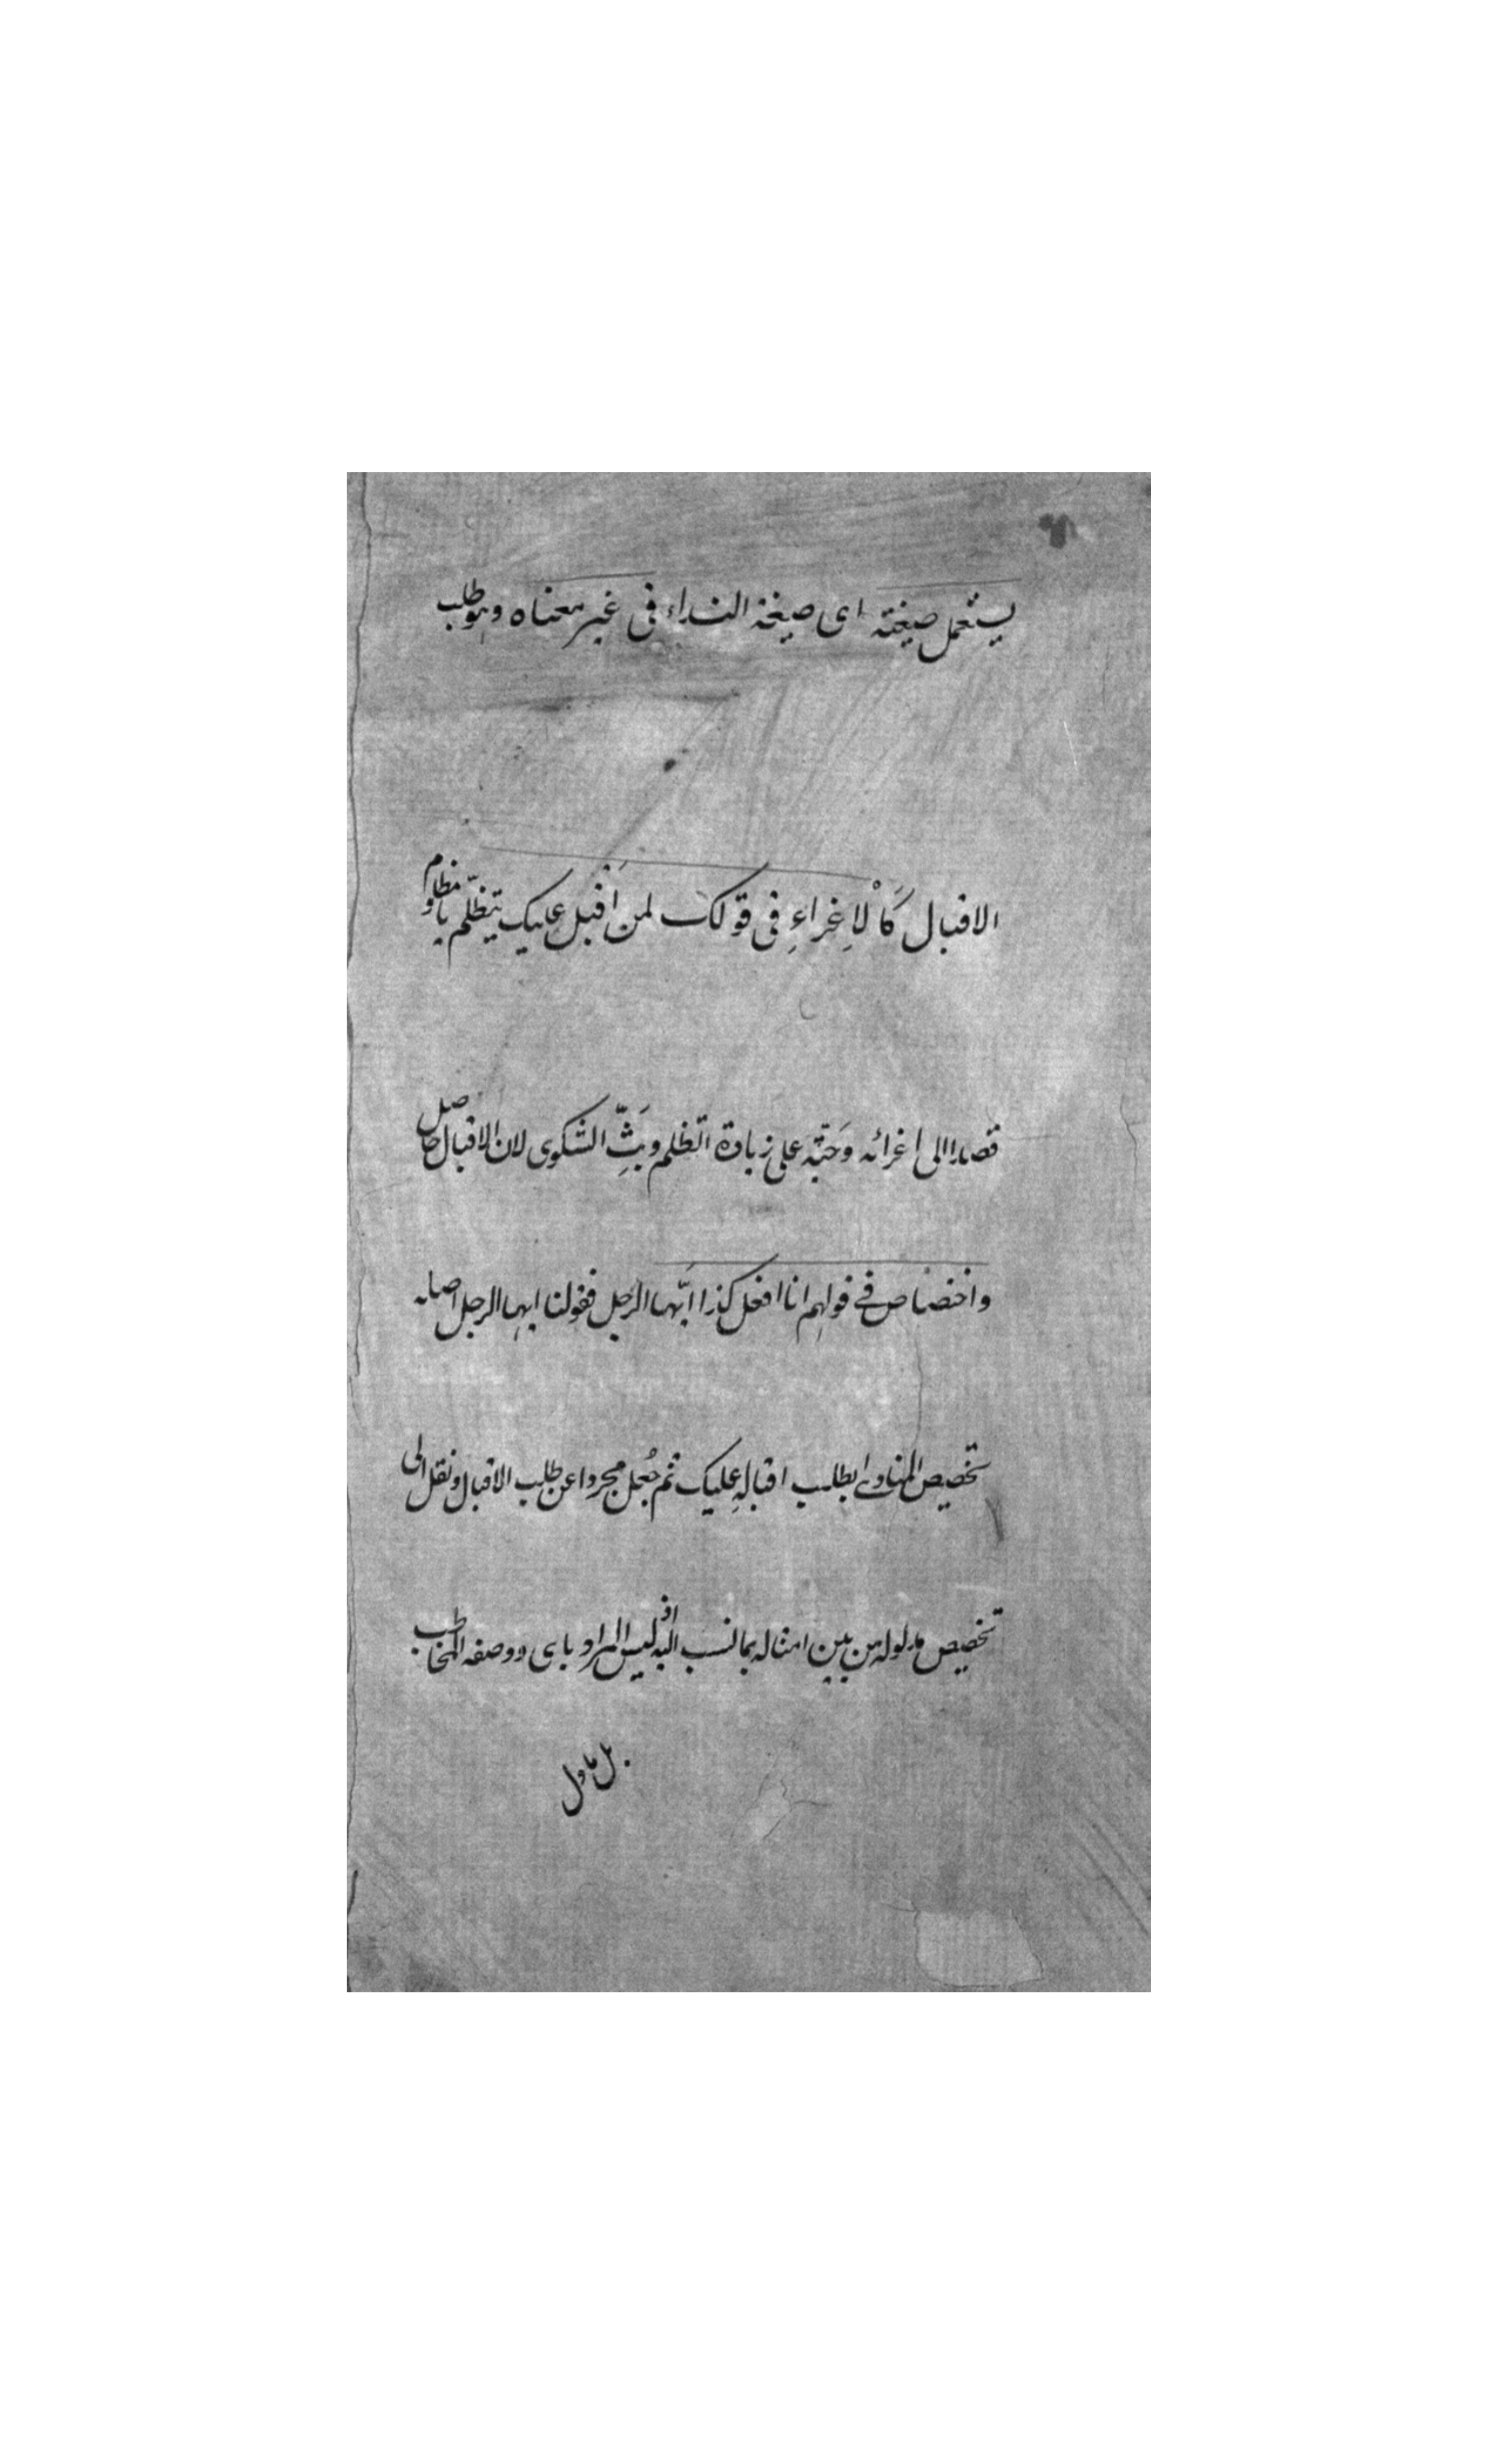 يستعمل صيغته اى صيغة النداء فى غير معناه وهو طلب
الاقبال كَاْلاِغراءِ فى قولك لمن اَقبل عليك يتظلّم يا مظلوم
قصدا الى اغرائه وَحثّه على زيادة التظلم وبَثِّ الشكوى لان الاقبال حاصل
واختصاص فى قولهم انا افعل كذا ايَّها الرجل فقولنا ايها الرجل اصله
تخصيص المنادى بطلب اقبالهِ عليك ثم جُعل مجردا عن طلب الاقبال ونقل الى
تخصيص مدلوله من بين امثاله بما نسب اليه اذ ليس المراد باى ووصفه المخاطب
بل ما دل